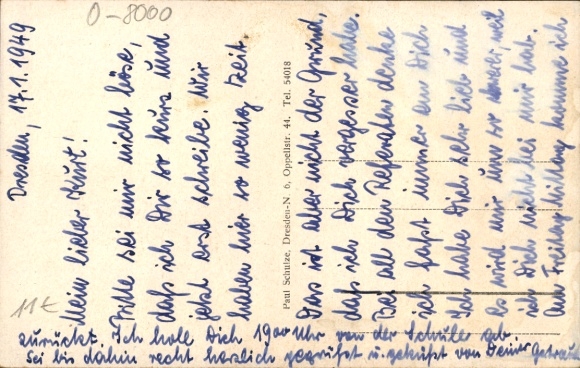 O-8000
Dresden, 17.1.1949
Mein lieber Kurt!
Bitte sei mir nicht böse,
daß ich Dir so kurz und
jetzt erst schreibe. Wir
haben hier so wenig Zeit.
11€
Paul Schulze, Dresden-N 6, Oppellstr. 44. Tel. 54018
Das ist aber nicht der Grund,
daß ich Dich vergessen habe.
Bei all den Referaten denke
ich fast immer an Dich
Ich habe Dich sehr lieb und
es wird mir um so schwerer, weil
ich Dich nicht bei mir hat.
Am Freitag Mittag komme ich
zurückt. Ich holl Dich 19 00 Uhr von der Schule ab
Sei bis dahin recht herzlich gegrüßt u. geküßt von Deiner Getraud